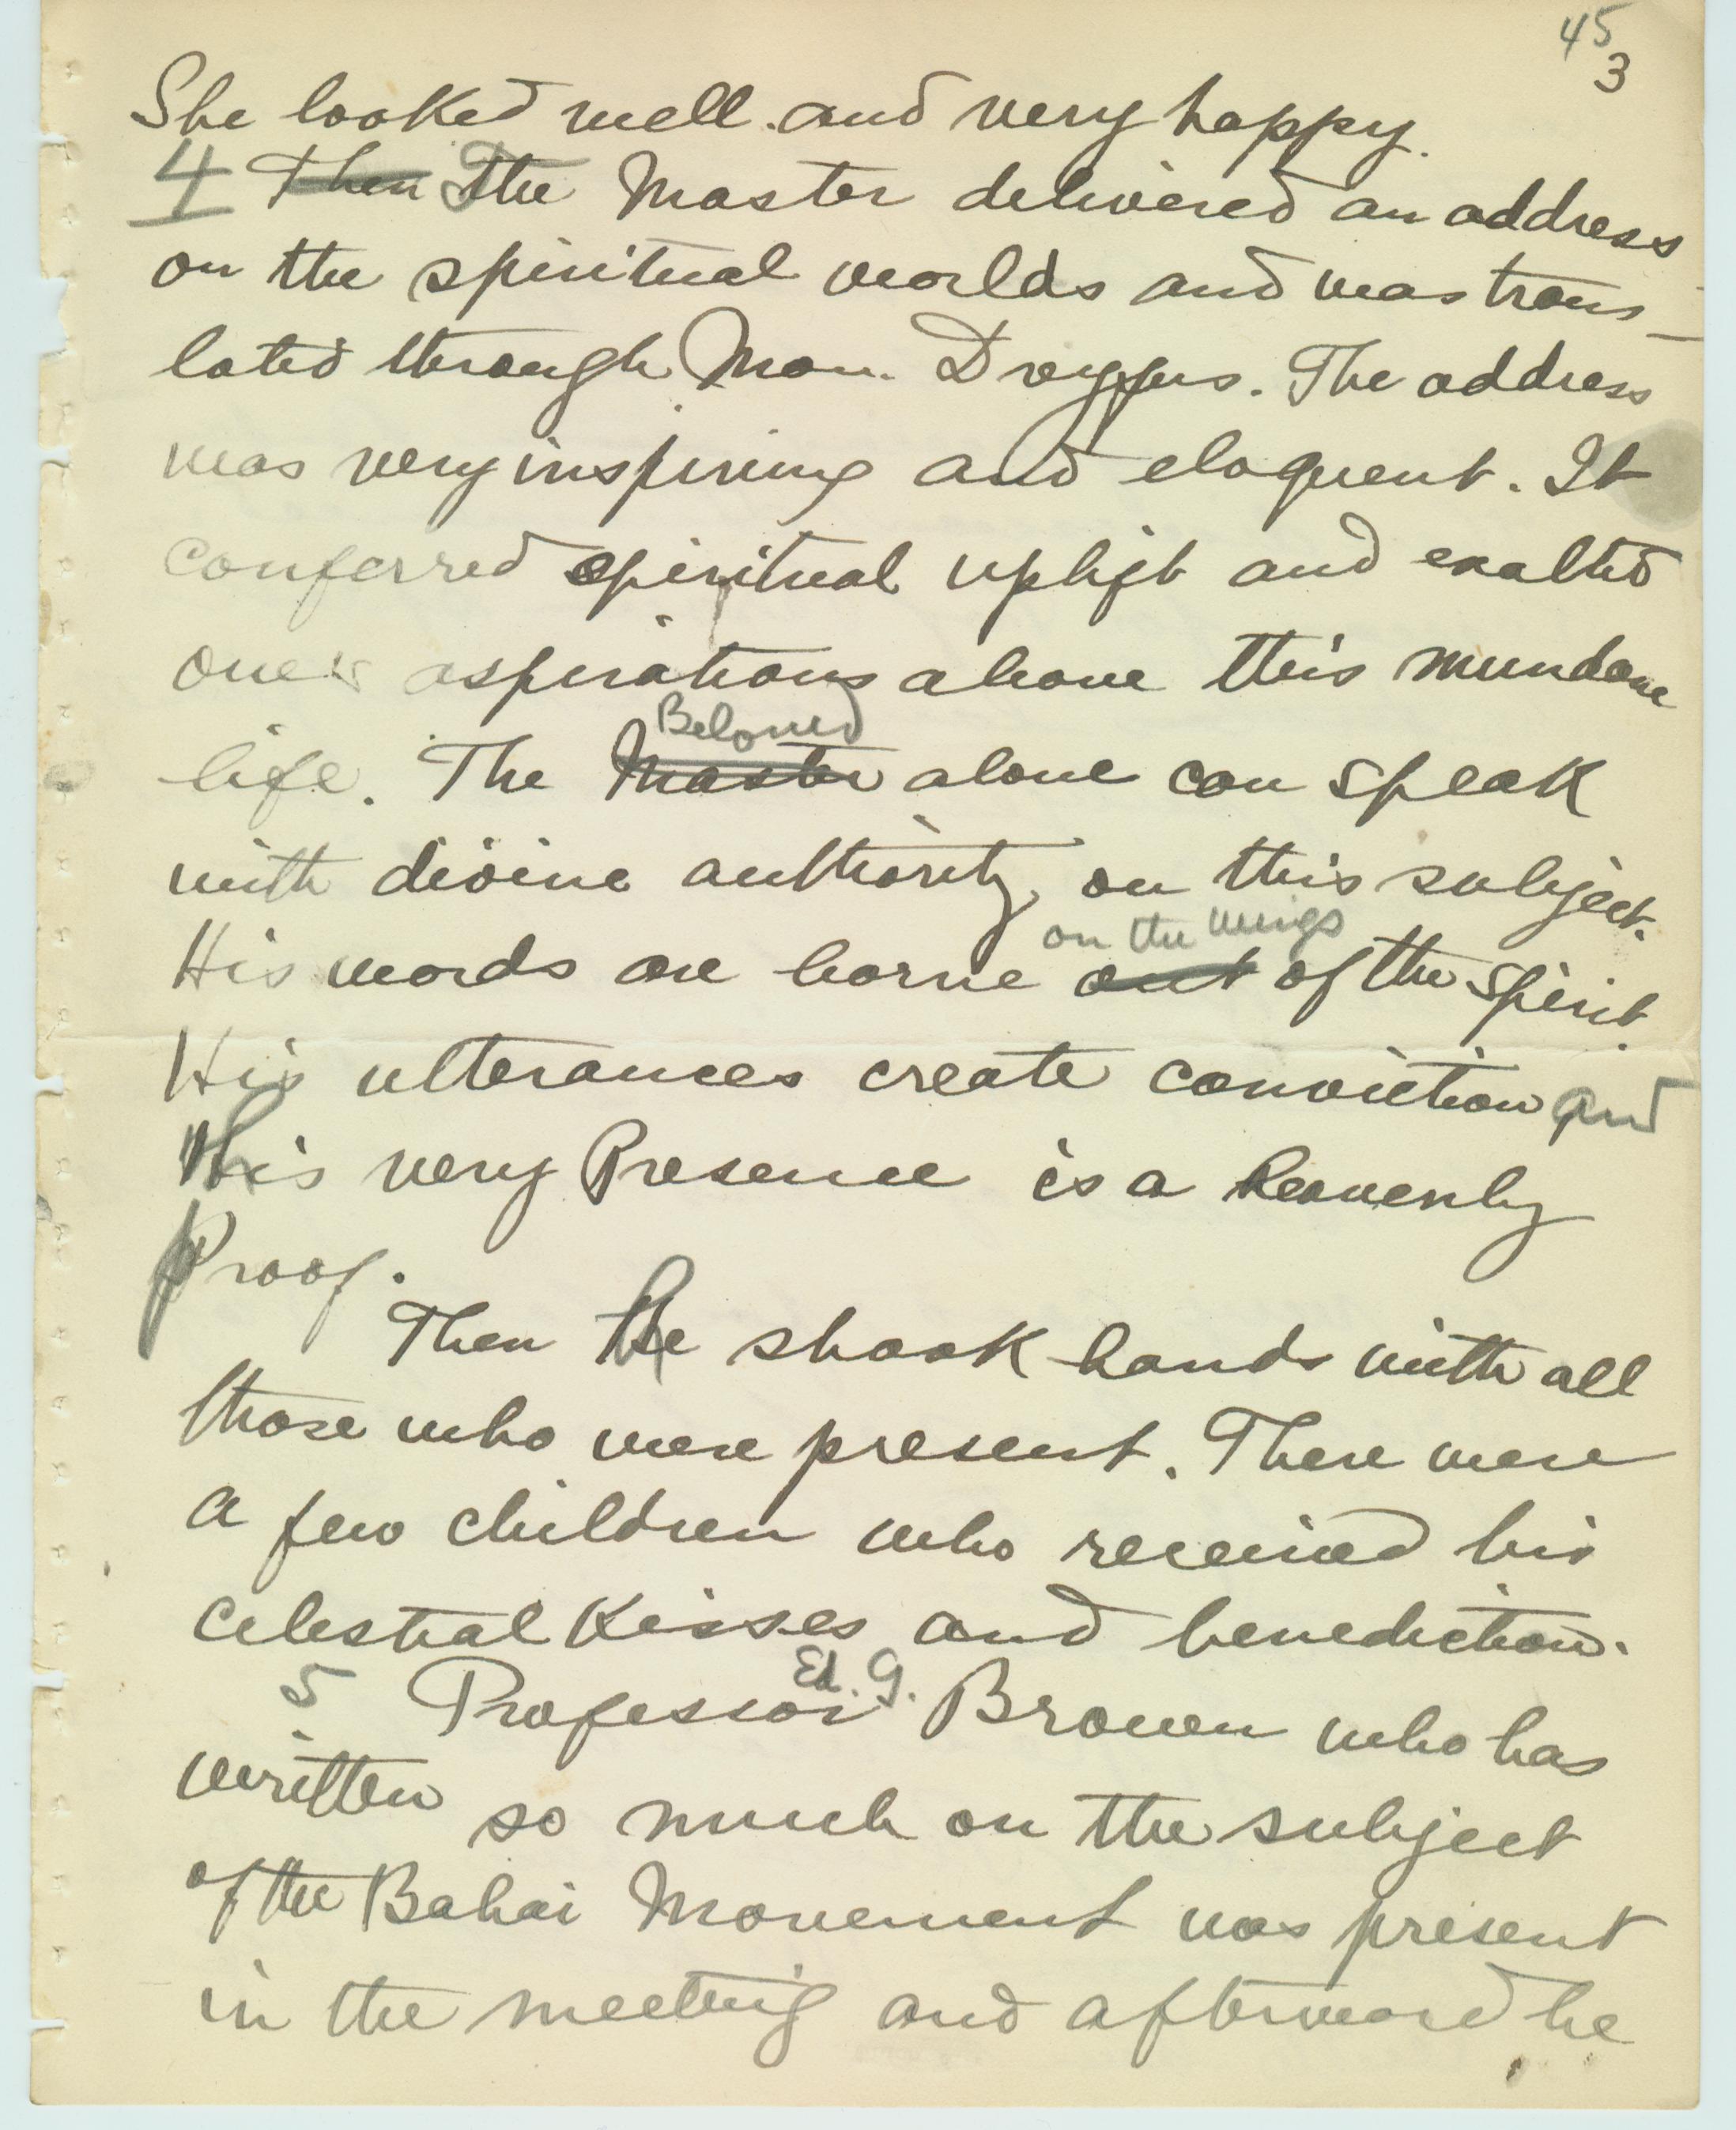 45
3
She looked well and very happy.
4 Then The Master delivered an address
on the spiritual worlds and was trans-
lated through Mon. Dreyfus. The address
was very inspiring and eloquent. It
conferred spiritual uplift and exalted
one's aspirations above this mundane
Beloved
life. The Master alone can speak
with divine authority on this subject.
on the wings
His words are borne out of the spirit.
His utterances create conviction and
His very Presence is a heavenly
Proof.
Then He shook hands with all
those who were present. There were
a few children who received his
celestial kisses and benediction.
Ed. G.
5 Professor Brown who has
written so much on the subject
of the Bahai Movement was present
in the meeting and afterward he